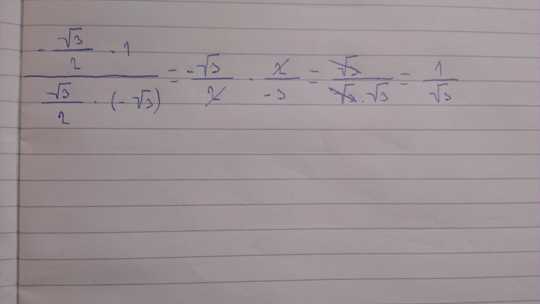 (-√3/2 · 1)/(√3/2 · (-√3)) = -√3/2 · 2/-3 = √3/(√3·√3) = 1/√3